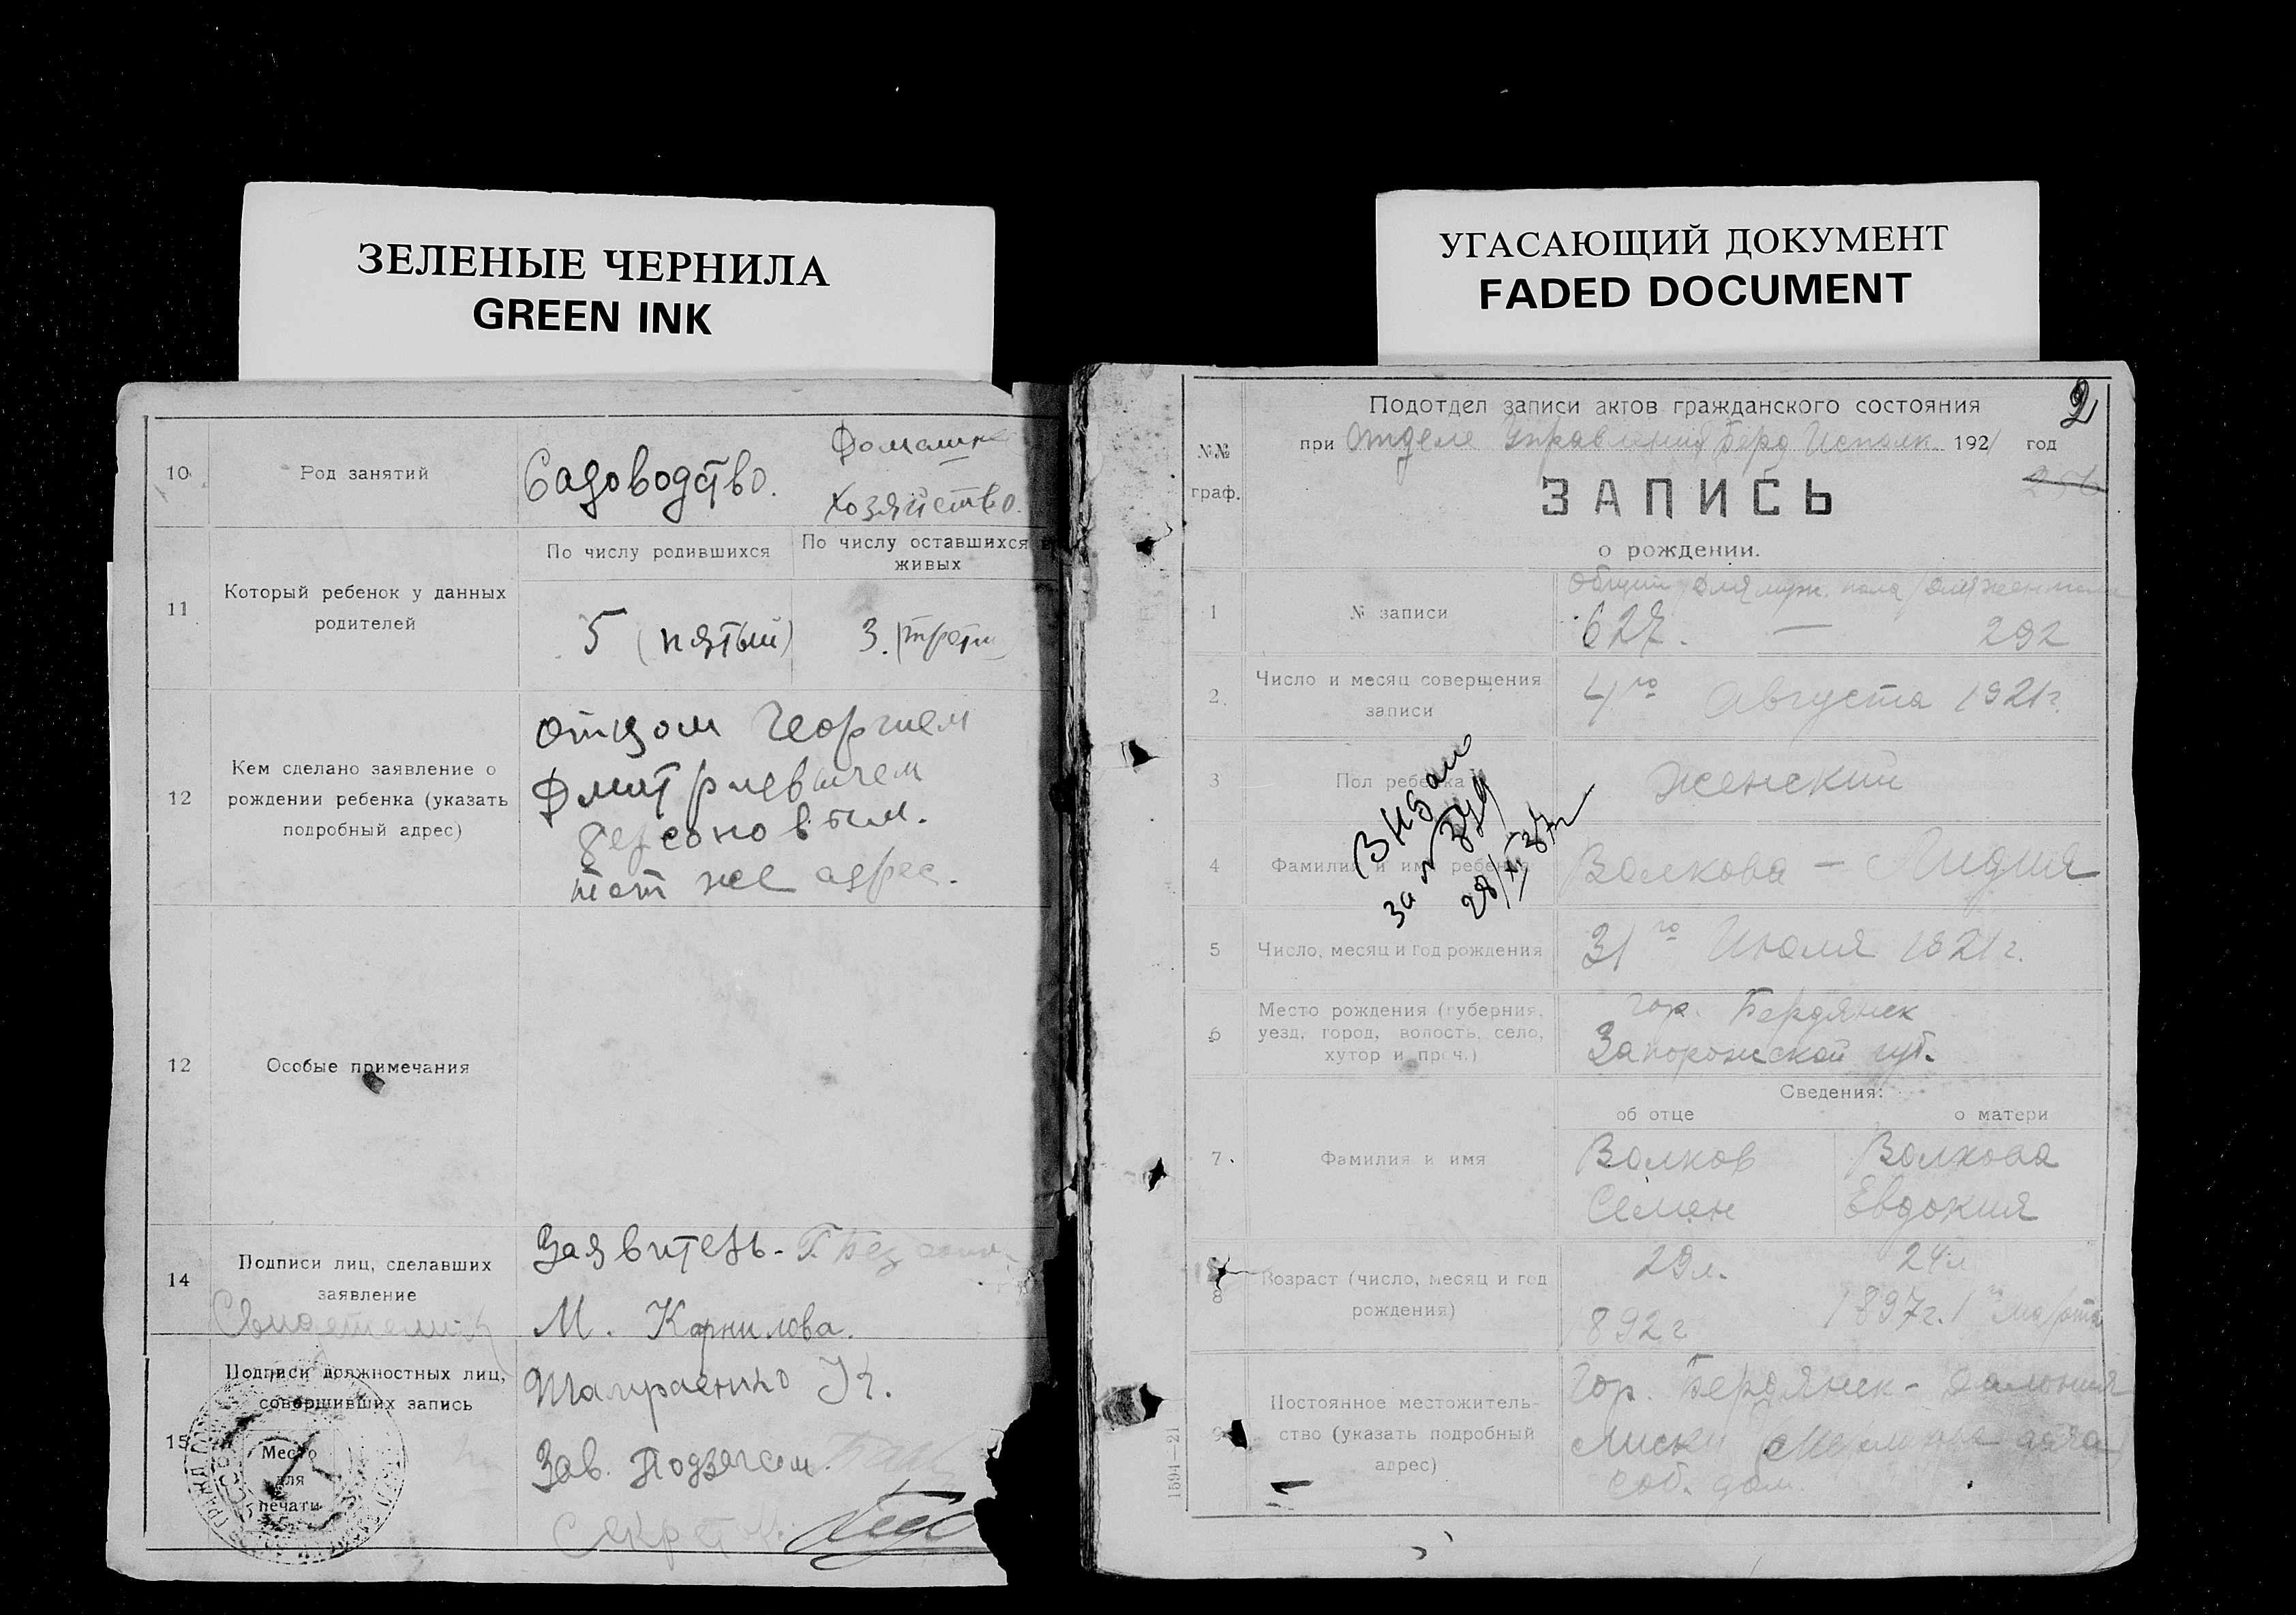 ЗЕЛЕНЫЕ ЧЕРНИЛА
GREEN INK
10
Род занятий
Садоводство.
хозяйство.
11
Который ребенок у данных
родителей
По числу родившихся
По числу оставшихся в
живых
5 (пятый)
3.
12
Кем сделано заявление о
рождении ребенка (указать
подробный адрес)
отцом Георгием
Дмитриевичем
тот же адрес.
12
Особые примечания
14
Подписи лиц, сделавших
заявление
Заявитель -
М. Корнилова.
15
Подписи должностных лиц,
совершивших запись
Место
для
печати
Зав. Подзагсом
УГАСАЮЩИЙ ДОКУМЕНТ
FADED DOCUMENT
2
№№
граф.
Подотдел записи актов гражданского состояния
при Отделе Управления Берд Исполк. 1921 год
256
ЗАПИСЬ
о рождении.
1
№ записи
Общий Для муж. пола Для жен пола
627. — 292
2
Число и месяц совершения
записи
4го Августа 1921г.
3
Пол ребенка
Женский
4
Фамилия и имя ребенка
Волкова — Лидия
5
Число, месяц и год рождения
31го Июля 1921г.
6
Место рождения (губерния,
уезд, город, волость, село,
хутор и проч.)
гор. Бердянск
Запорожской губ.
Сведения:
об отце
о матери
7
Фамилия и имя
Волков
Семен
Волкова
Евдокия
8
Возраст (число, месяц и год
рождения)
29л.
892г
24л
1897г. 1го марта
9
Постоянное местожитель-
ство (указать подробный
адрес)
Гор. Бердянск -
Лиски
соб. дом
1594—21